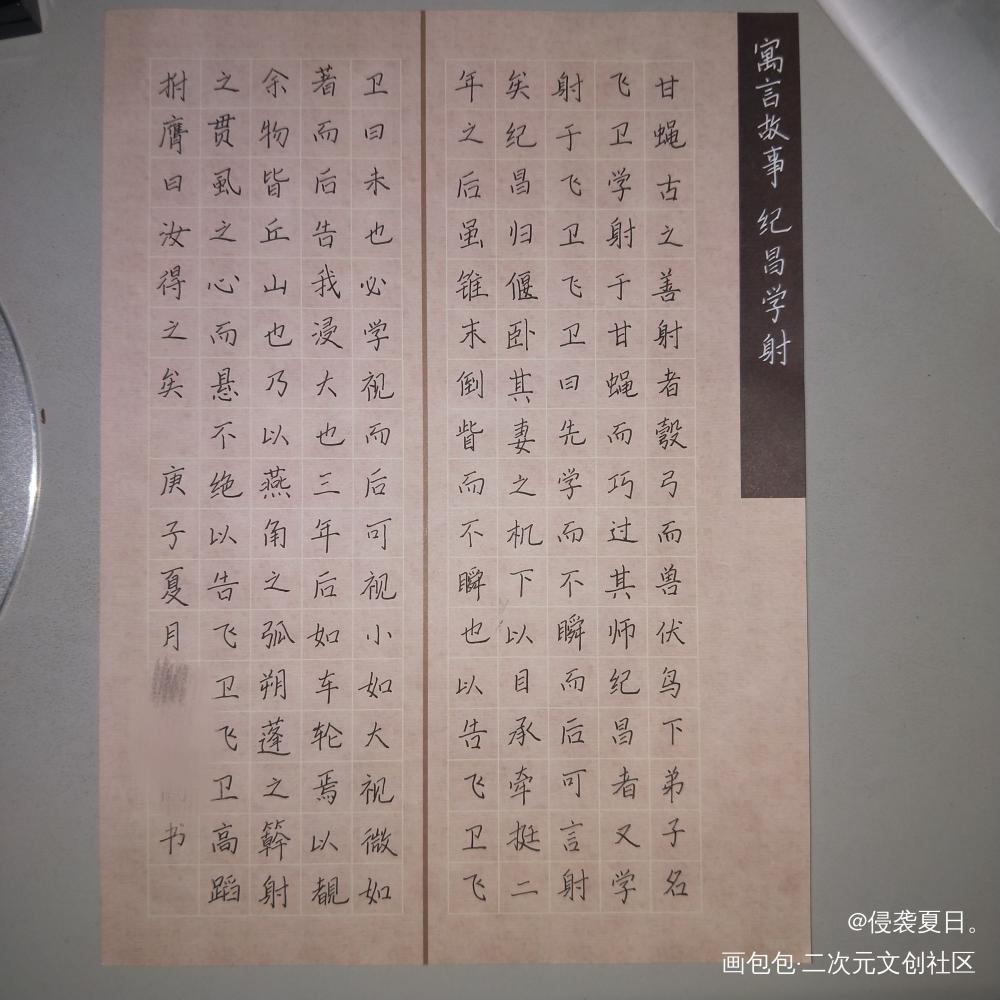 寓言故事 纪昌学射
甘蝇古之善射者彀弓而兽伏鸟下弟子名
飞卫学射于甘蝇而巧过其师纪昌者又学
射于飞卫飞卫曰先学而不瞬而后可言射
矣纪昌归偃卧其妻之机下以目承牵挺二
年之后虽锥末倒眥而不瞬也以告飞卫飞
卫曰未也必学视而后可视小如大视微如
著而后告我浸大也三年后如车轮焉以覩
余物皆丘山也乃以燕角之弧朔蓬之簳射
之贯虱之心而悬不绝以告飞卫飞卫高蹈
拊膺曰汝得之矣 庚子夏月 书
@侵袭夏日。
画包包·二次元文创社区